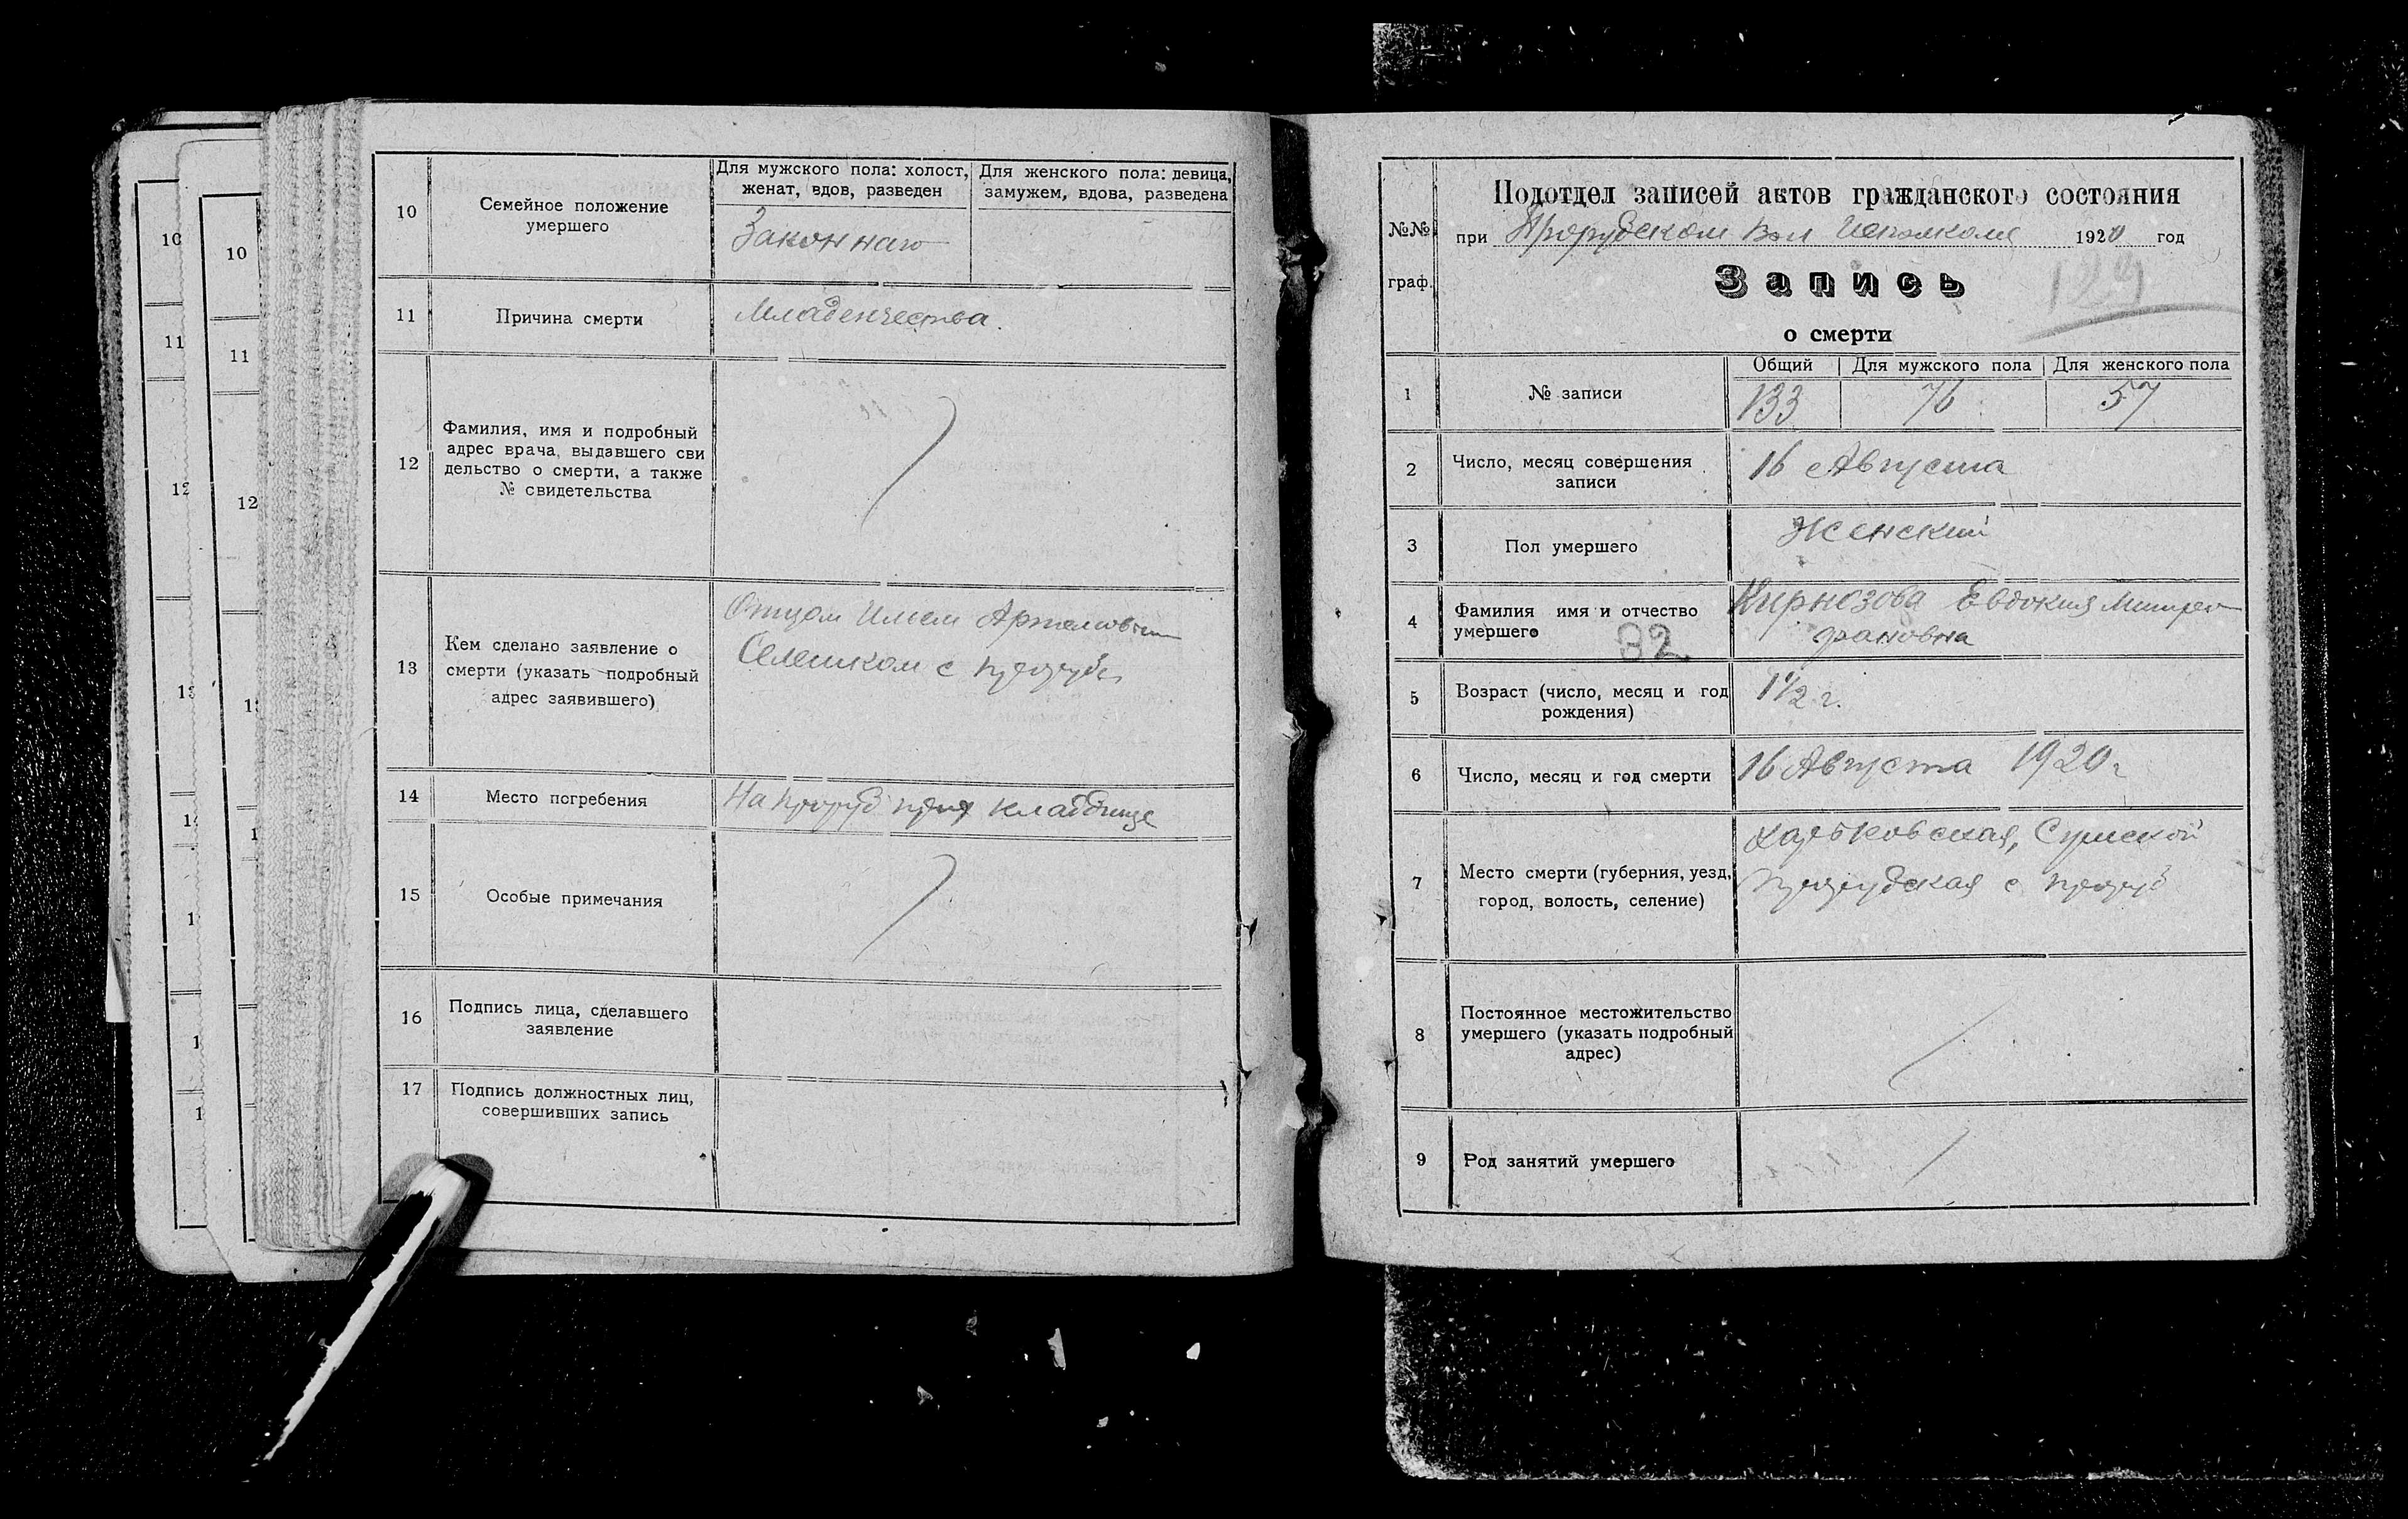 10
Семейное положение
умершего
Для мужского пола: холост,
женат, вдов, разведен
Для женского пола: девица,
замужем, вдова, разведена
Законнаго
11
Причина смерти
Младенчества.
12
Фамилия, имя и подробный
адрес врача, выдавшего сви
дельство о смерти, а также
№ свидетельства
13
Кем сделано заявление о
смерти (указать подробный
адрес заявившего)
Отцом Ильем Артемовым
с
14
Место погребения
На кладбище
15
Особые примечания
16
Подпись лица, сделавшего
заявление
17
Подпись должностных лиц,
совершивших запись
№№
граф.
Подотдел записей актов гражданского состояния
при Прорубском Вол Исполкоме 1920 год
Запись
о смерти
1
№ записи
Общий
Для мужского пола
Для женского пола
133
76
57
2
Число, месяц совершения
записи
16 Августа
3
Пол умершего
Женский
4
Фамилия имя и отчество
умершего
32
Кирнозова Евдокия Митро
фановна
5
Возраст (число, месяц и год
рождения)
1 1/2 г.
6
Число, месяц и год смерти
16 Августа 1920 г
7
Место смерти (губерния, уезд,
город, волость, селение)
Харьковская, Сумской
Прорубская с Проруб
8
Постоянное местожительство
умершего (указать подробный
адрес)
9
Род занятий умершего
10
11
12
10
11
12